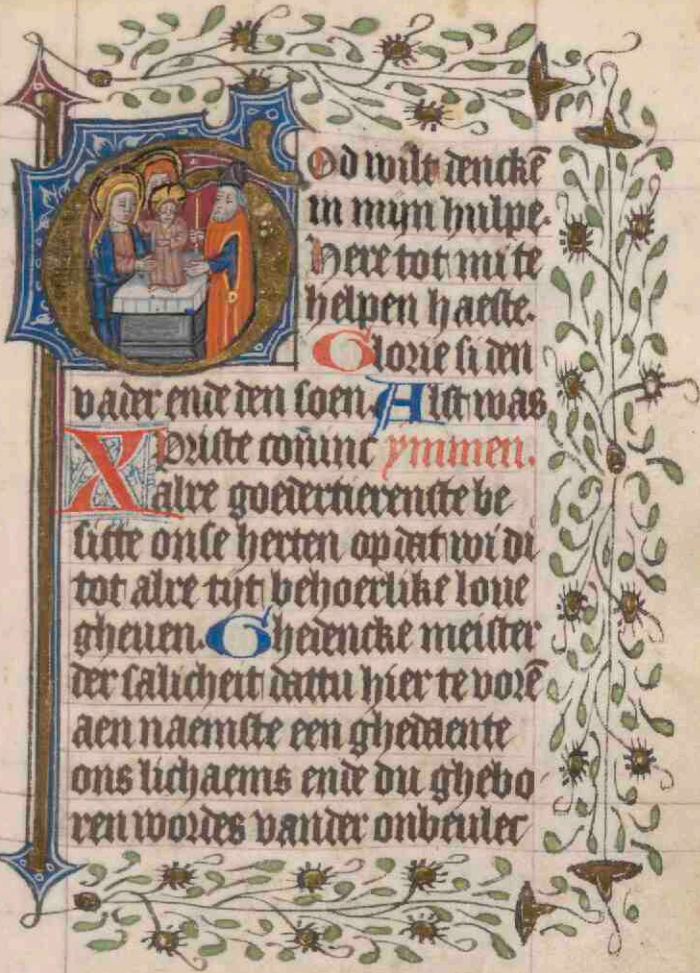 God wilt denckē
in mijn hulpe.
here tot mi te
helpen haeste.
Glorie si den
vader ende den soen. Alst was
Xpriste coninc ymmen.
alre goedertierenste be
sitte onse herten op dat wi di
tot alre tijt behoerlike loue
gheuen. Ghedencke meister
der salicheit dattu hier te vorē
aen naemste een ghedaente
ons lichaems ende du ghebo
ren wordes vander onbeulec